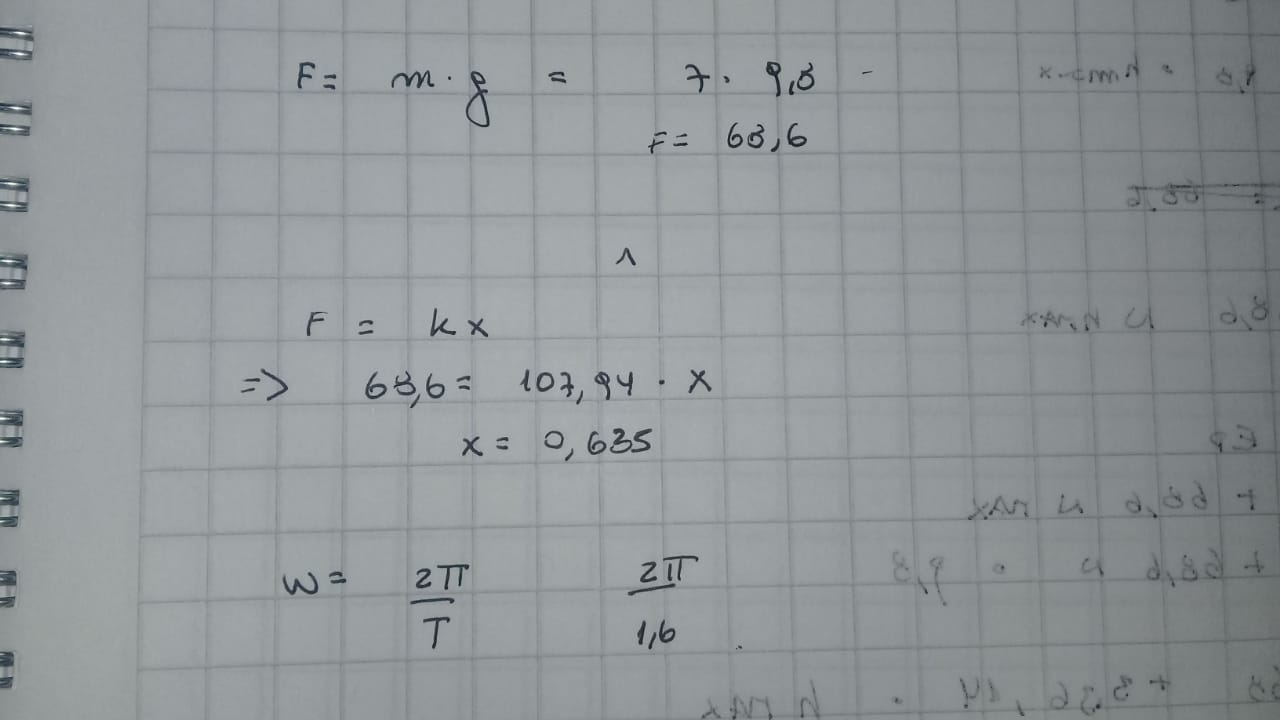 F = m · g = 7 · 9,8 -
F = 68,6
^
F = kx
=> 68,6 = 107,94 · x
x = 0,635
W = 2π/T 2π/1,6 .